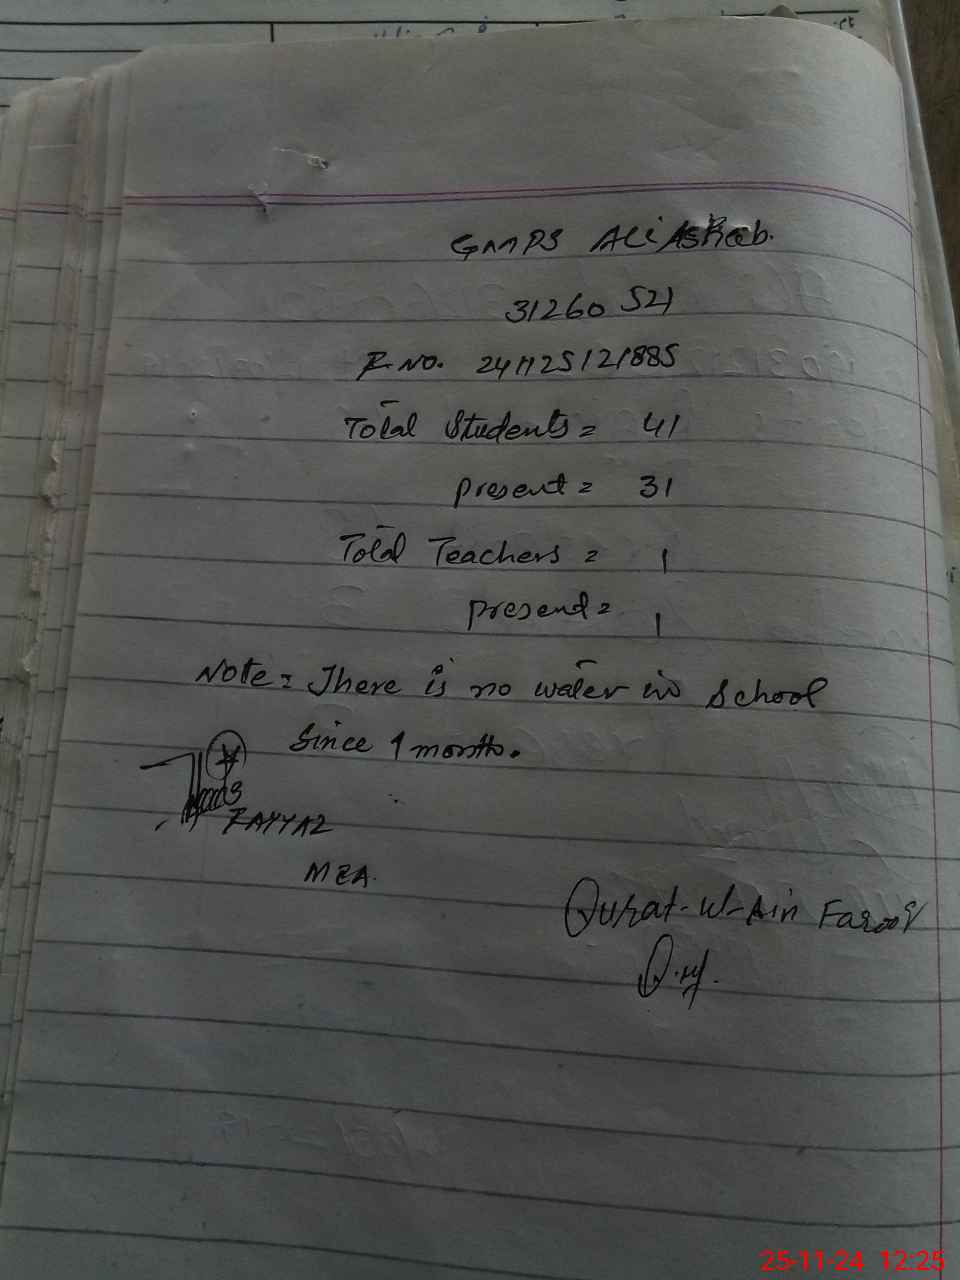 GMPS Ali Ashab.
31260521
R.No. 241125121885
Total Students = 41
present = 31
Total Teachers = 1
present = 1
Note = There is no water in School
Since 1 month.
FAYYAZ
MEA.
Qurat-ul-Ain Farooq
25-11-24 12:25